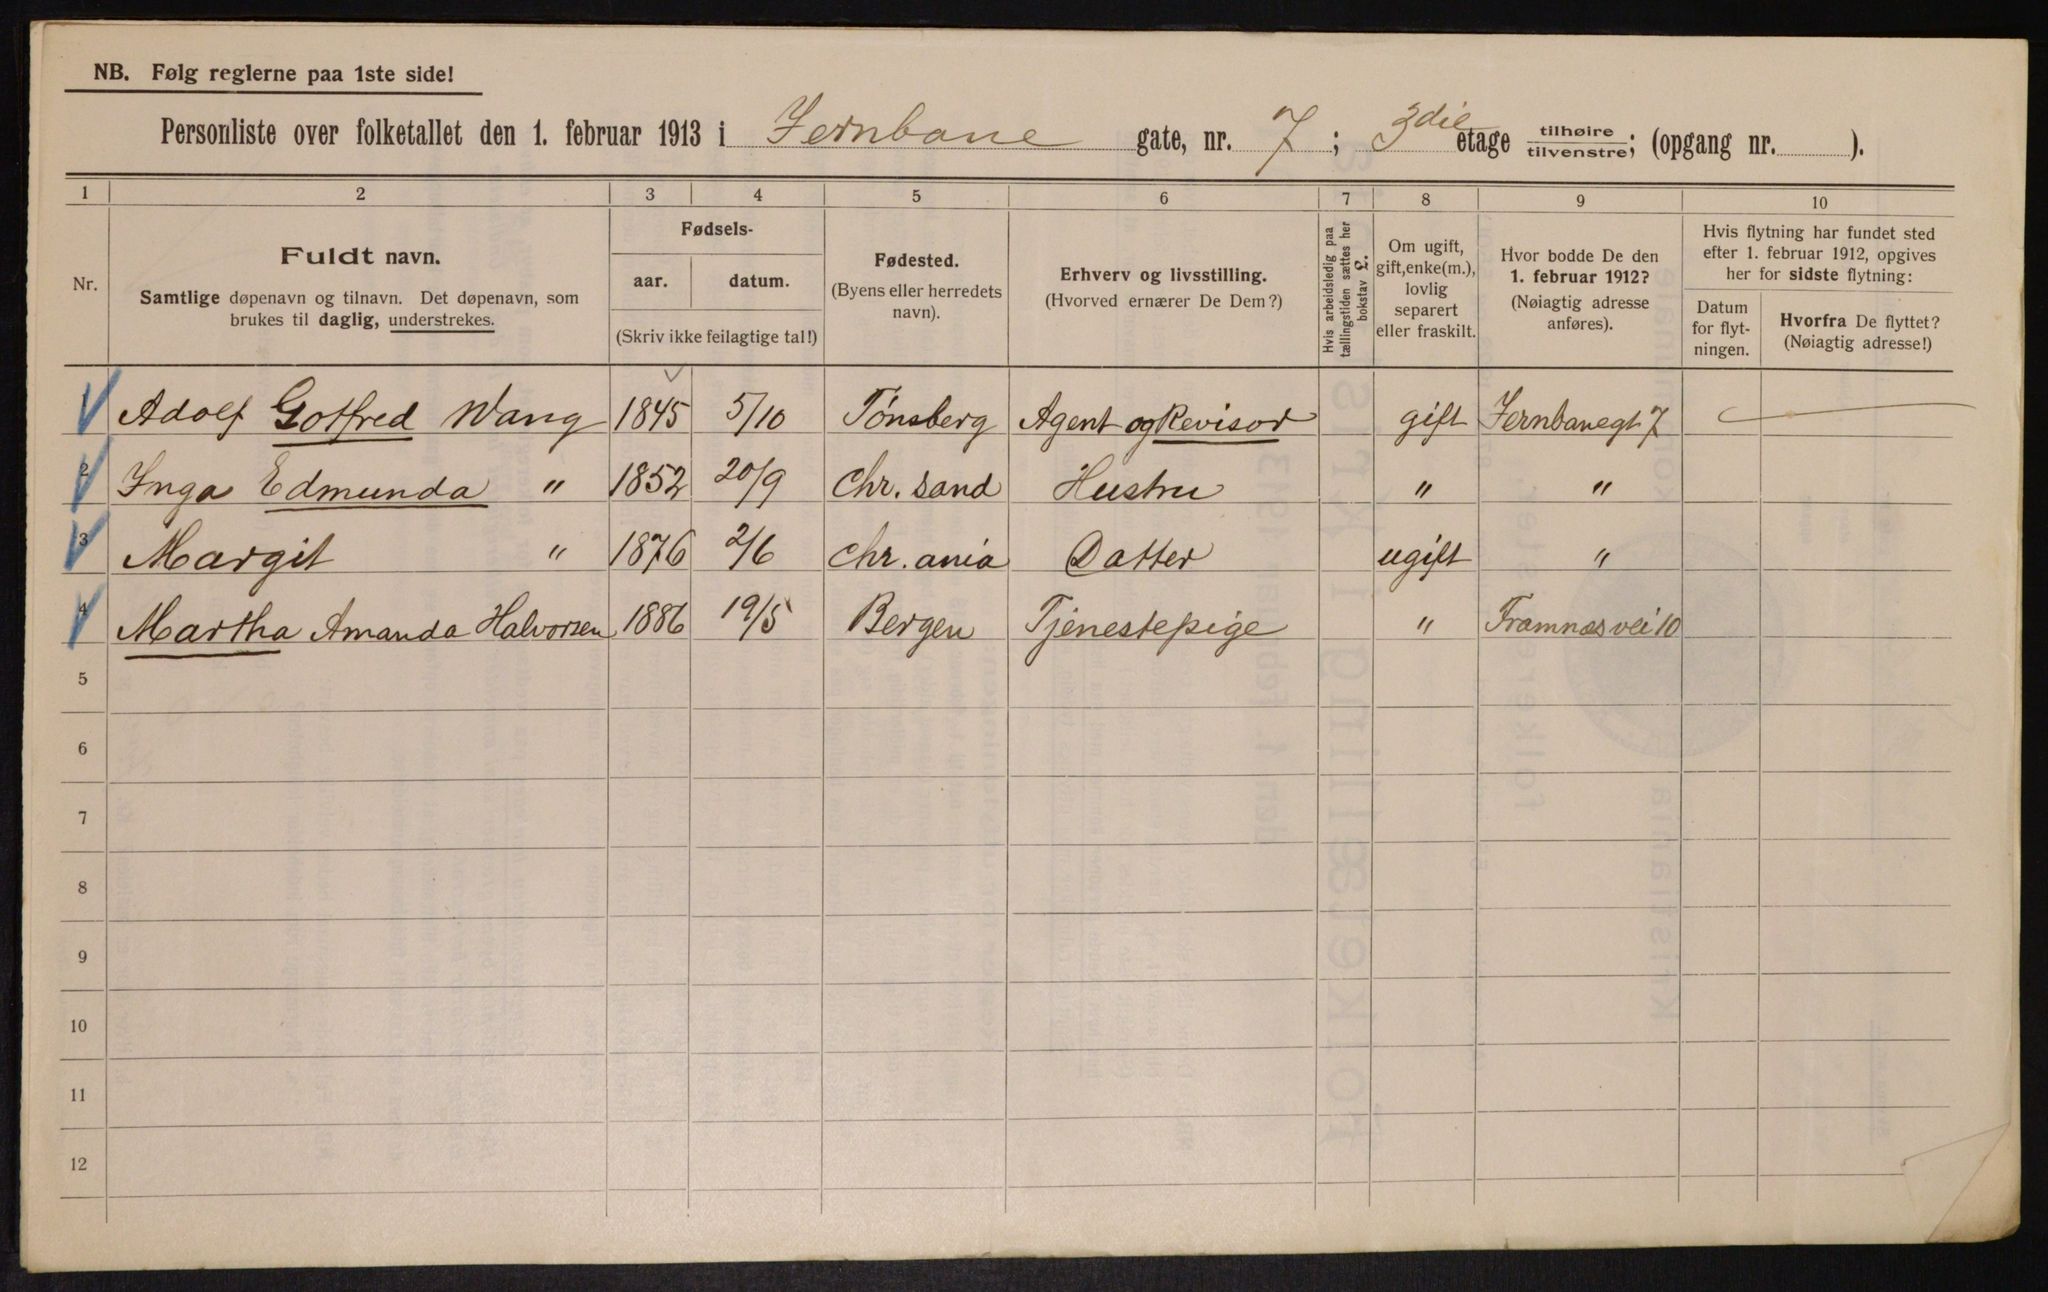 NB. Følg reglerne paa 1ste side!
Personliste over folketallet den 1. februar 1913 i Jernbane gate, nr. 7; 3die etage tilhøire/tilvenstre; (opgang nr. ).
1 2 3 4 5 6 7 8 9 10
Nr.
Fuldt navn.
Samtlige døpenavn og tilnavn. Det døpenavn, som
brukes til daglig, understrekes.
Fødsels-
aar. datum.
(Skriv ikke feilagtige tal!)
Fødested.
(Byens eller herredets
navn).
Erhverv og livsstilling.
(Hvorved ernærer De Dem?)
Hvis arbeidsledig paa
tællingstiden sættes her
bokstav L.
Om ugift,
gift, enke(m.),
lovlig
separert
eller fraskilt.
Hvor bodde De den
1. februar 1912?
(Nøiagtig adresse
anføres).
Hvis flytning har fundet sted
efter 1. februar 1912, opgives
her for sidste flytning:
Datum
for flyt-
ningen.
Hvorfra De flyttet?
(Nøiagtig adresse!)
1 Adolf Gotfred Wang 1845 5/10 Tønsberg Agent og Revisor gift Jernbanegt 7 —
2 Inga Edmunda " 1852 20/9 Chr. sand Hustru " "
3 Margit " 1876 2/6 Chr. ania Datter ugift "
4 Martha Amanda Halvorsen 1886 19/5 Bergen Tjenestepige " Framnæsvei 10
5
6
7
8
9
10
11
12